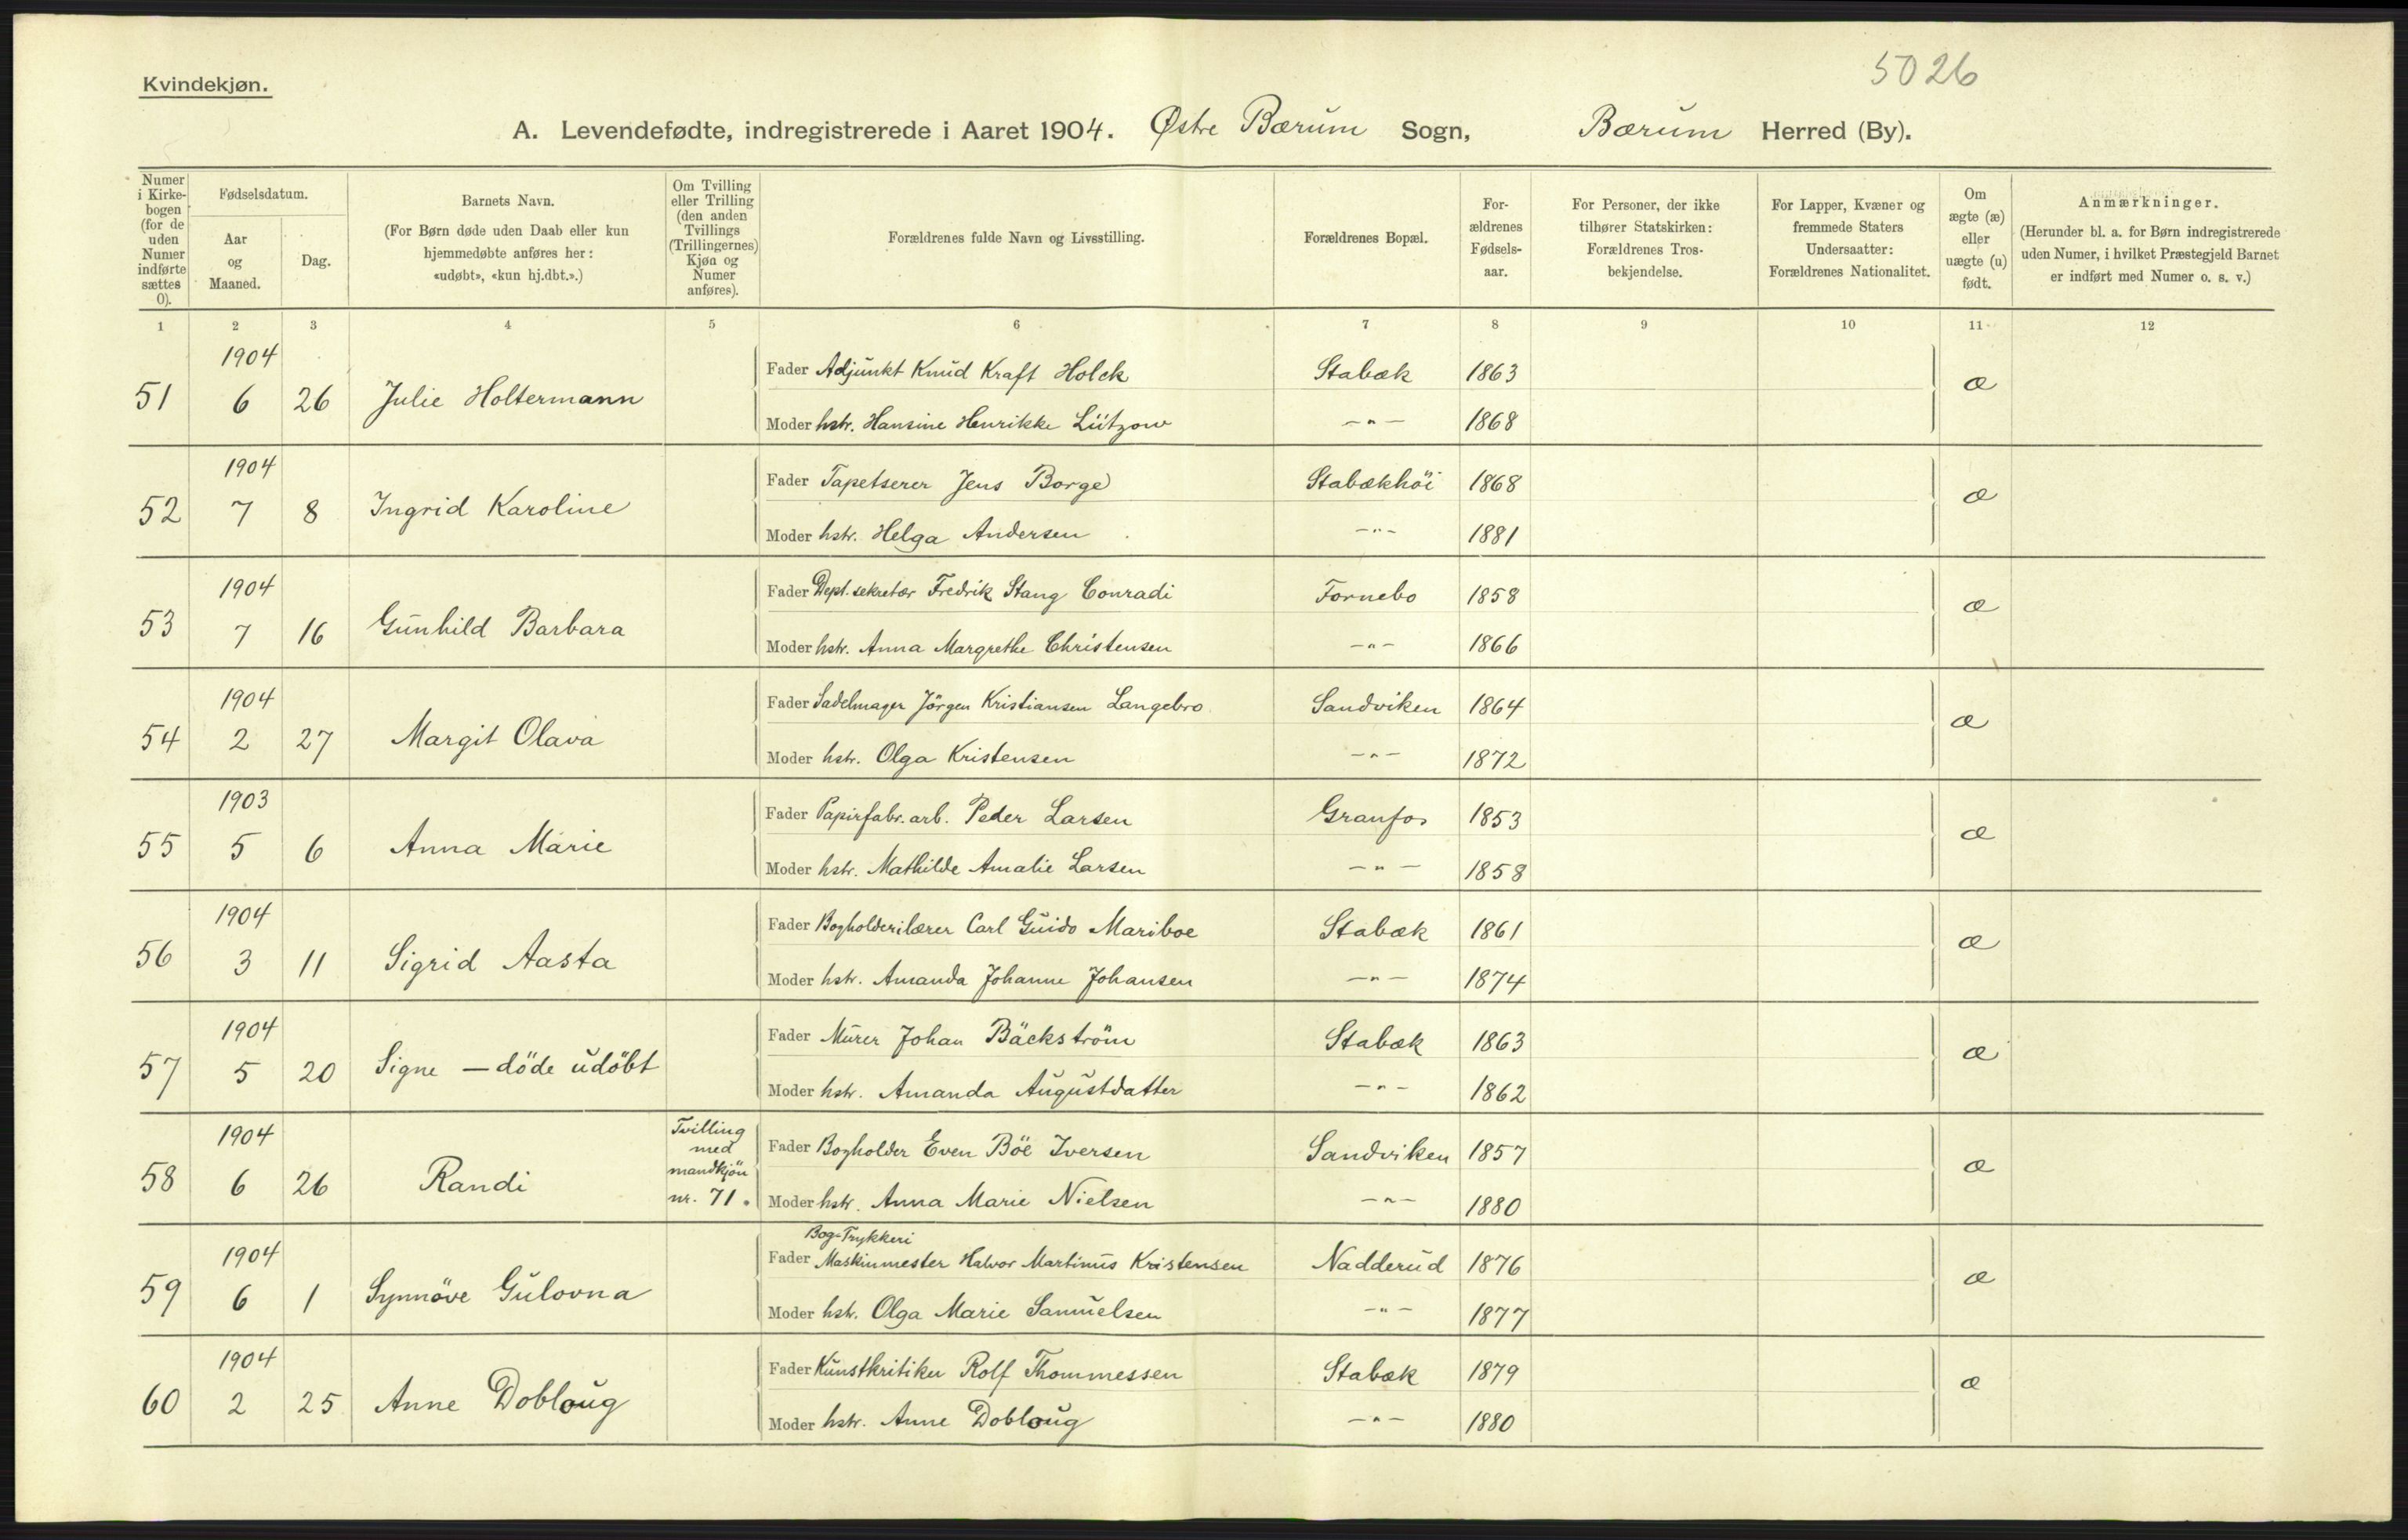 5026
Kvindekjøn.
A. Levendefødte, indregistrerede i Aaret 1904. Østre Bærum Sogn, Bærum Herred (By).
Numer i Kirke-bogen (for de uden Numer indførte sættes 0).
Fødselsdatum.
Aar og Maaned.
Dag.
Barnets Navn.
(For Børn døde uden Daab eller kun hjemmedøbte anføres her: «udøbt», «kun hj.dbt.».)
Om Tvilling eller Trilling (den anden Tvillings (Trillingernes) Kjøn og Numer anføres).
Forældrenes fulde Navn og Livsstilling.
Forældrenes Bopæl.
For-ældrenes Fødsels-aar.
For Personer, der ikke tilhører Statskirken: Forældrenes Tros-bekjendelse.
For Lapper, Kvæner og fremmede Staters Undersaatter: Forældrenes Nationalitet.
Om ægte (æ) eller uægte (u) født.
Anmærkninger.
(Herunder bl. a. for Børn indregistrerede uden Numer, i hvilket Præstegjeld Barnet er indført med Numer o. s. v.)
1 2 3 4 5 6 7 8 9 10 11 12
1904
Fader Adjunkt Knud Kraft Holck Stabæk 1863
51 6 26 Julie Holtermann æ
Moder hstr. Hansine Henrikke Lützow —"— 1868
1904
Fader Tapetserer Jens Borge Stabækhöi 1868
52 7 8 Ingrid Karoline æ
Moder hstr. Helga Andersen —"— 1881
1904
Fader Dept. sekretær Fredrik Stang Conradi Fornebo 1858
53 7 16 Gunhild Barbara æ
Moder hstr. Anna Margrethe Christensen —"— 1866
1904
Fader Sadelmager Jörgen Kristiansen Langebro Sandviken 1864
54 2 27 Margit Olava æ
Moder hstr. Olga Kristensen —"— 1872
1903
Fader Papirfabr. arb. Peder Larsen Granfos 1853
55 5 6 Anna Marie æ
Moder hstr. Mathilde Amalie Larsen —"— 1858
1904
Fader Bogholderilærer Carl Guido Mariboe Stabæk 1861
56 3 11 Sigrid Aasta æ
Moder hstr. Amanda Johanne Johansen —"— 1874
1904
Fader Murer Johan Bäckström Stabæk 1863
57 5 20 Signe — döde udöbt æ
Moder hstr. Amanda Augustdatter —"— 1862
1904
Tvilling med mandkjön nr. 71.
Fader Bogholder Even Böe Iversen Sandviken 1857
58 6 26 Randi æ
Moder hstr. Anna Marie Nielsen —"— 1880
1904
Bog-Trykkeri
Fader Maskinmester Halvor Martinus Kristensen Nadderud 1876
59 6 1 Synnöve Gulovna æ
Moder hstr. Olga Marie Samuelsen —"— 1877
1904
Fader Kunstkritiker Rolf Thommessen Stabæk 1879
60 2 25 Anne Dobloug æ
Moder hstr. Anne Dobloug —"— 1880